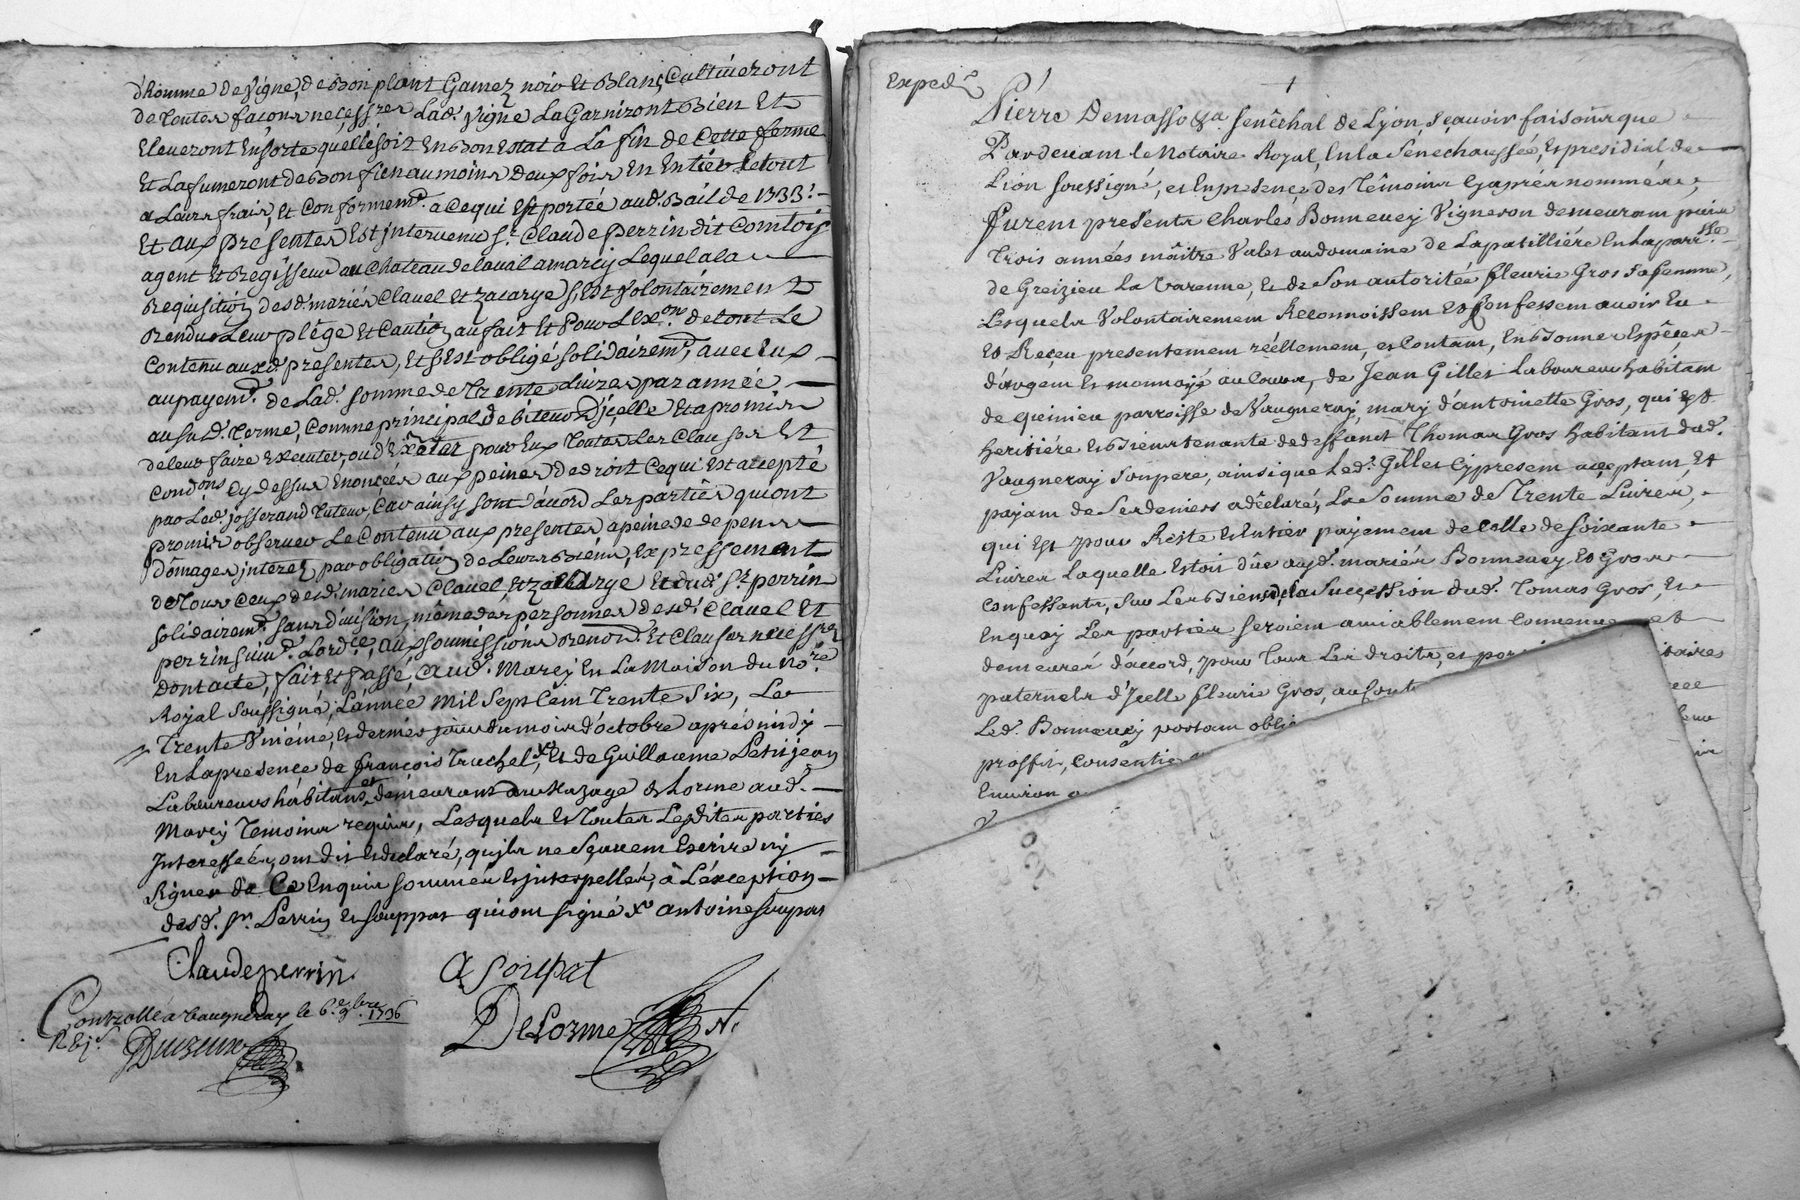 d'homme de vigne, de bon plant Gamez noir et Blanc Cultiveront
de toutes façons necessres Lad. vigne La Garniront Bien Et
Eleveront Ensorte quelle soit En bon Estat a La fin de Cette ferme
Et La fumeront de bon fien au moins deux fois En Entier Le tout
a Leurs frais, Et Conformemt. a Ce qui Est portée aud. Bail de 1733 :
Et aux presentes Est intervenu Sr. Claude perrin dit Comtois
agent Et Regisseur au Chateau de laval a marcy Lequel a la
Requisition desd. mariés Clavel Et zacarye s'est volontairement
Rendu Leur plége Et Caution au fait Et Pour L'exon. de tout Le
Contenu auxd. presentes, Et s'Est obligé solidairemt. avec Eux
au payemt. de Lad. somme de Trente Livres par année
au susd. terme, Comme principal debiteur d'jcelle Et a promis
de leur faire Executer, ou d'Exécuter pour Eux Toutes Les Clauses Et
Condons Cy dessus Enoncées aux peines de droit Ce qui Est accepté
par Led. josserand tuteur, Car ainsy sont d'acord Les parties qui ont
promis observer Le Contenu aux presentes a peine de depens
dômages interez par obligation de Leurs biens, Expressement
de tous Ceux desd. mariés Clavel Et zacarye Et dud. Sr. perrin
solidairemt. sans division, même des personnes desd. Clavel Et
perrin suivt. Lordce, aux soumissions Renonons. Et Clauses necessres
Dont acte, fait Et Passé, aud. Marcy En La Maison du Nore
Royal soussigné, L'année Mil Sept Cent Trente Six, Le
Trente Vnième, Et dernier jour du mois d'octobre aprés midy
En La presence de françois Truchet, Et de Guillaume Petitjean
Laboureurs habitans et demeurans au Mazage de Lorme aud.
Marcy Temoins requis, Lesquels Et Toutes Lesdites parties
Interessées, ont dit Et declaré, qu'jls ne sçavent Escrire ny
signer de Ce Enquis sommés Et jnterpellés, à L'exception
desd. Sr. Perrin Et souppat qui ont signé X antoine soupat
Claude perrin
A Soupat
Controllé a vaugneray le 6e. 9bre. 1736
DeLorme N.
Exped.
Pierre Demasso &a senêchal de Lyon, sçavoir faisons que
Pardevant le Notaire Royal, En la Senechaussée, Et presidial de
Lion soussigné, et En presence des Têmoins Cyaprés nommés,
furent presents Charles Bonnevey Vigneron demeurant puis
Trois années mâitre Valet au domaine de Lapatilliére En La parrsse
de Greizieu La Varenne, Et de son autorité fleurie Gros sa femme,
Lesquels Volontairement Reconnoissent Et Confessent avoir Eu
Et Reçeu presentement réellement, et Contant, En bonnes Espêces
d'argent Et monnoye au Cours, de Jean Gilles Laboureur habitant
de quinieu parroisse de Vaugneray, mary d'antoinette Gros, qui Est
heritiére Et bientenante de deffunt Thomas Gros habitant dud.
Vaugneray son pere, ainsi que Led. Gilles Cy present acceptant, Et
payant de Ses deniers a dêclaré, La Somme de Trente Livres,
qui Est pour Reste Et Entier payement de Celle de soixante
Livres Laquelle Estoit düe auxd. mariés Bonnevey Et Gros
Confessants, Sur Les biens, de La Succession dud. Tomas Gros, Et
Enquoy Les parties seroient amiablement Convenues, et
demeurés d'accord, pour Tous Les droits, et
paternels d'Jcelle fleurie Gros, au
Led. Bonnevey portant
proffit, Consentie
Environ